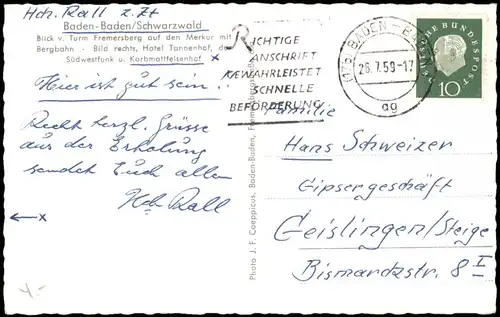 Hch. Rall z. Zt
Baden-Baden/Schwarzwald
Blick v. Turm Fremersberg auf den Merkur mit
Bergbahn - Bild rechts, Hotel Tannenhof, der
Südwestfunk u. Korbmattfelsenhof x
Hier ist gut sein..
Recht herzl. Grüsse
aus der Erholung
sendet Euch allen
Hch Rall
← x
RICHTIGE
ANSCHRIFT
GEWÄHRLEISTET
SCHNELLE
BEFÖRDERUNG
(17b) BADEN-BADEN
26.7.59-17
ag
DEUTSCHE BUNDESPOST
10
Photo J. F. Coeppicus, Baden-Baden,
Familie
Hans Schweizer
Gipsergeschäft
Geislingen/Steige
Bismarckstr. 8 I